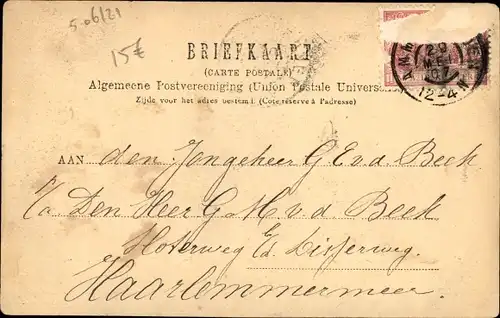 5-06/21
15€
BRIEFKAART
(CARTE POSTALE)
Algemeene Postvereeniging (Union Postale Universe
Zijde voor het adres bestemd. (Côté réservé à l'adresse)
20
MEI
07
12-4N
AAN den Jongeheer G E v. d. Beek
Den Heer G. M. v. d. Beek
Hoterweg
Haarlemmermeer.